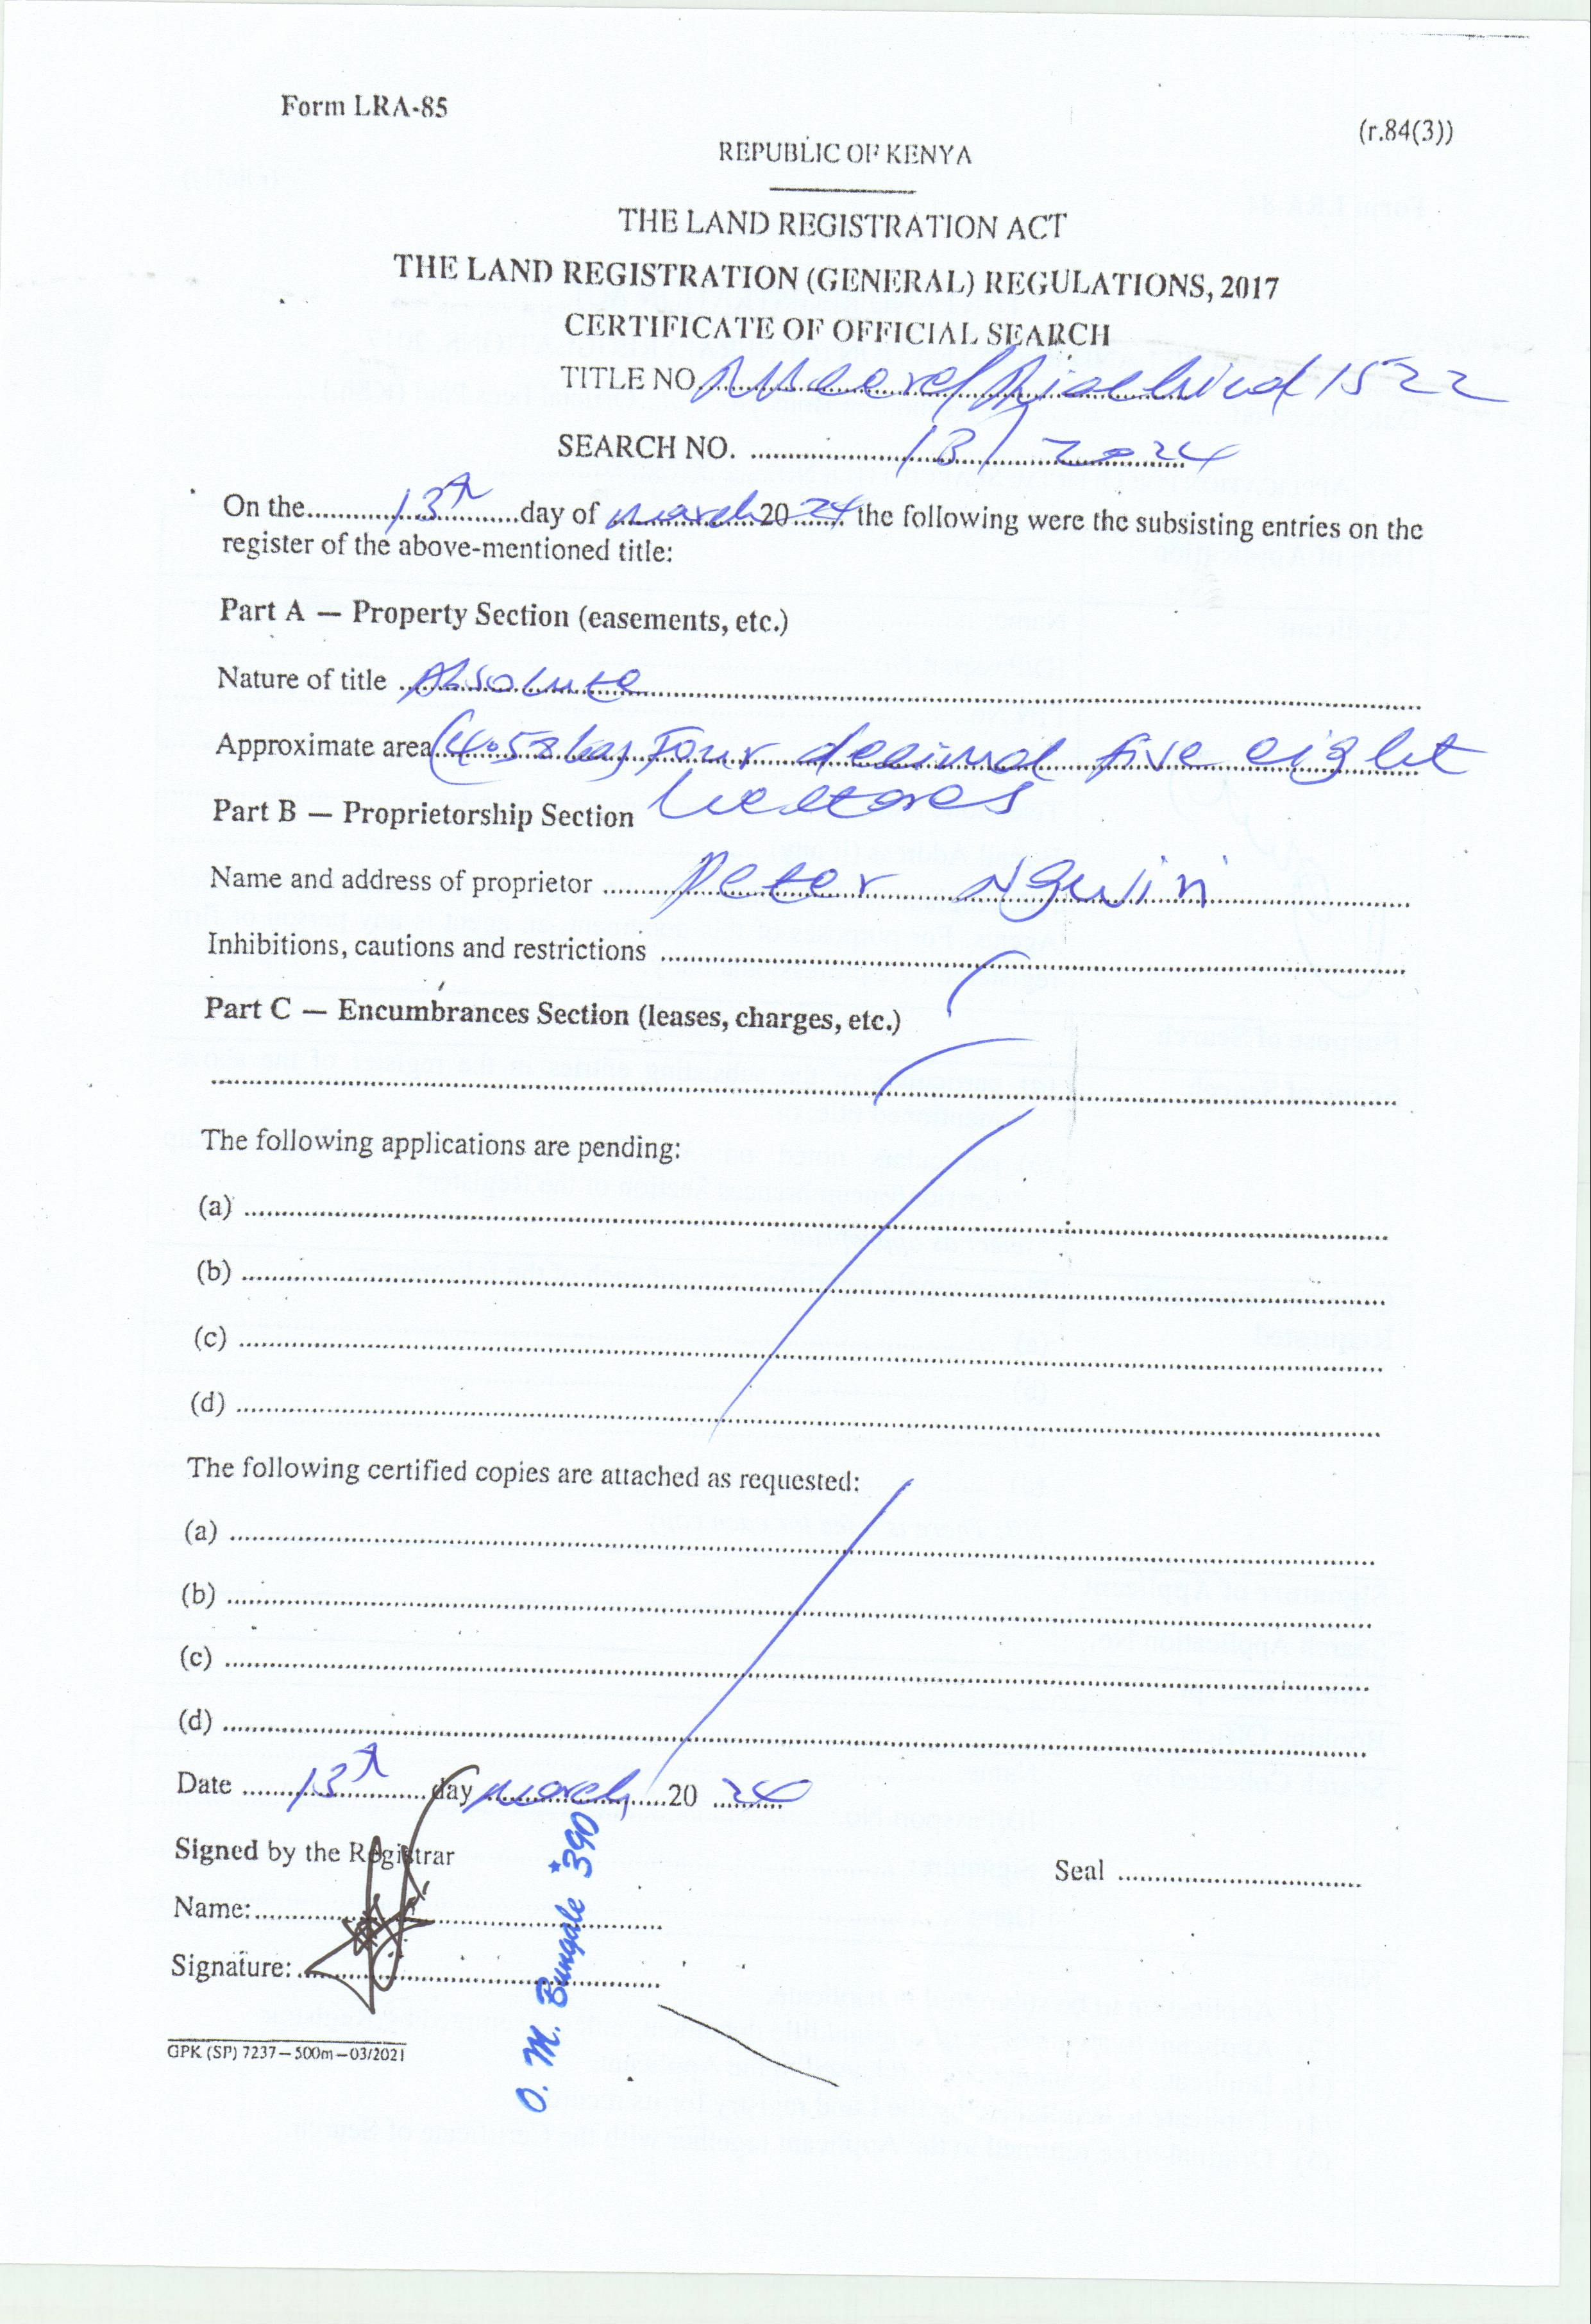 Form LRA-85
(r.84(3))
REPUBLIC OF KENYA
THE LAND REGISTRATION ACT
THE LAND REGISTRATION (GENERAL) REGULATIONS, 2017
CERTIFICATE OF OFFICIAL SEARCH
TITLE NO. 1522
SEARCH NO. 13/2024
On the 13th day of march 2024 the following were the subsisting entries on the
register of the above-mentioned title:
Part A — Property Section (easements, etc.)
Nature of title Absolute
Approximate area (4.58ha) Four decimal five eight
hectares
Part B — Proprietorship Section
Name and address of proprietor Peter
Inhibitions, cautions and restrictions
Part C — Encumbrances Section (leases, charges, etc.)
The following applications are pending:
(a)
(b)
(c)
(d)
The following certified copies are attached as requested:
(a)
(b)
(c)
(d)
Date 13th day march 2024
Signed by the Registrar
Seal
Name:
Signature:
O. M. Bungale *390
GPK (SP) 7237—500m—03/2021